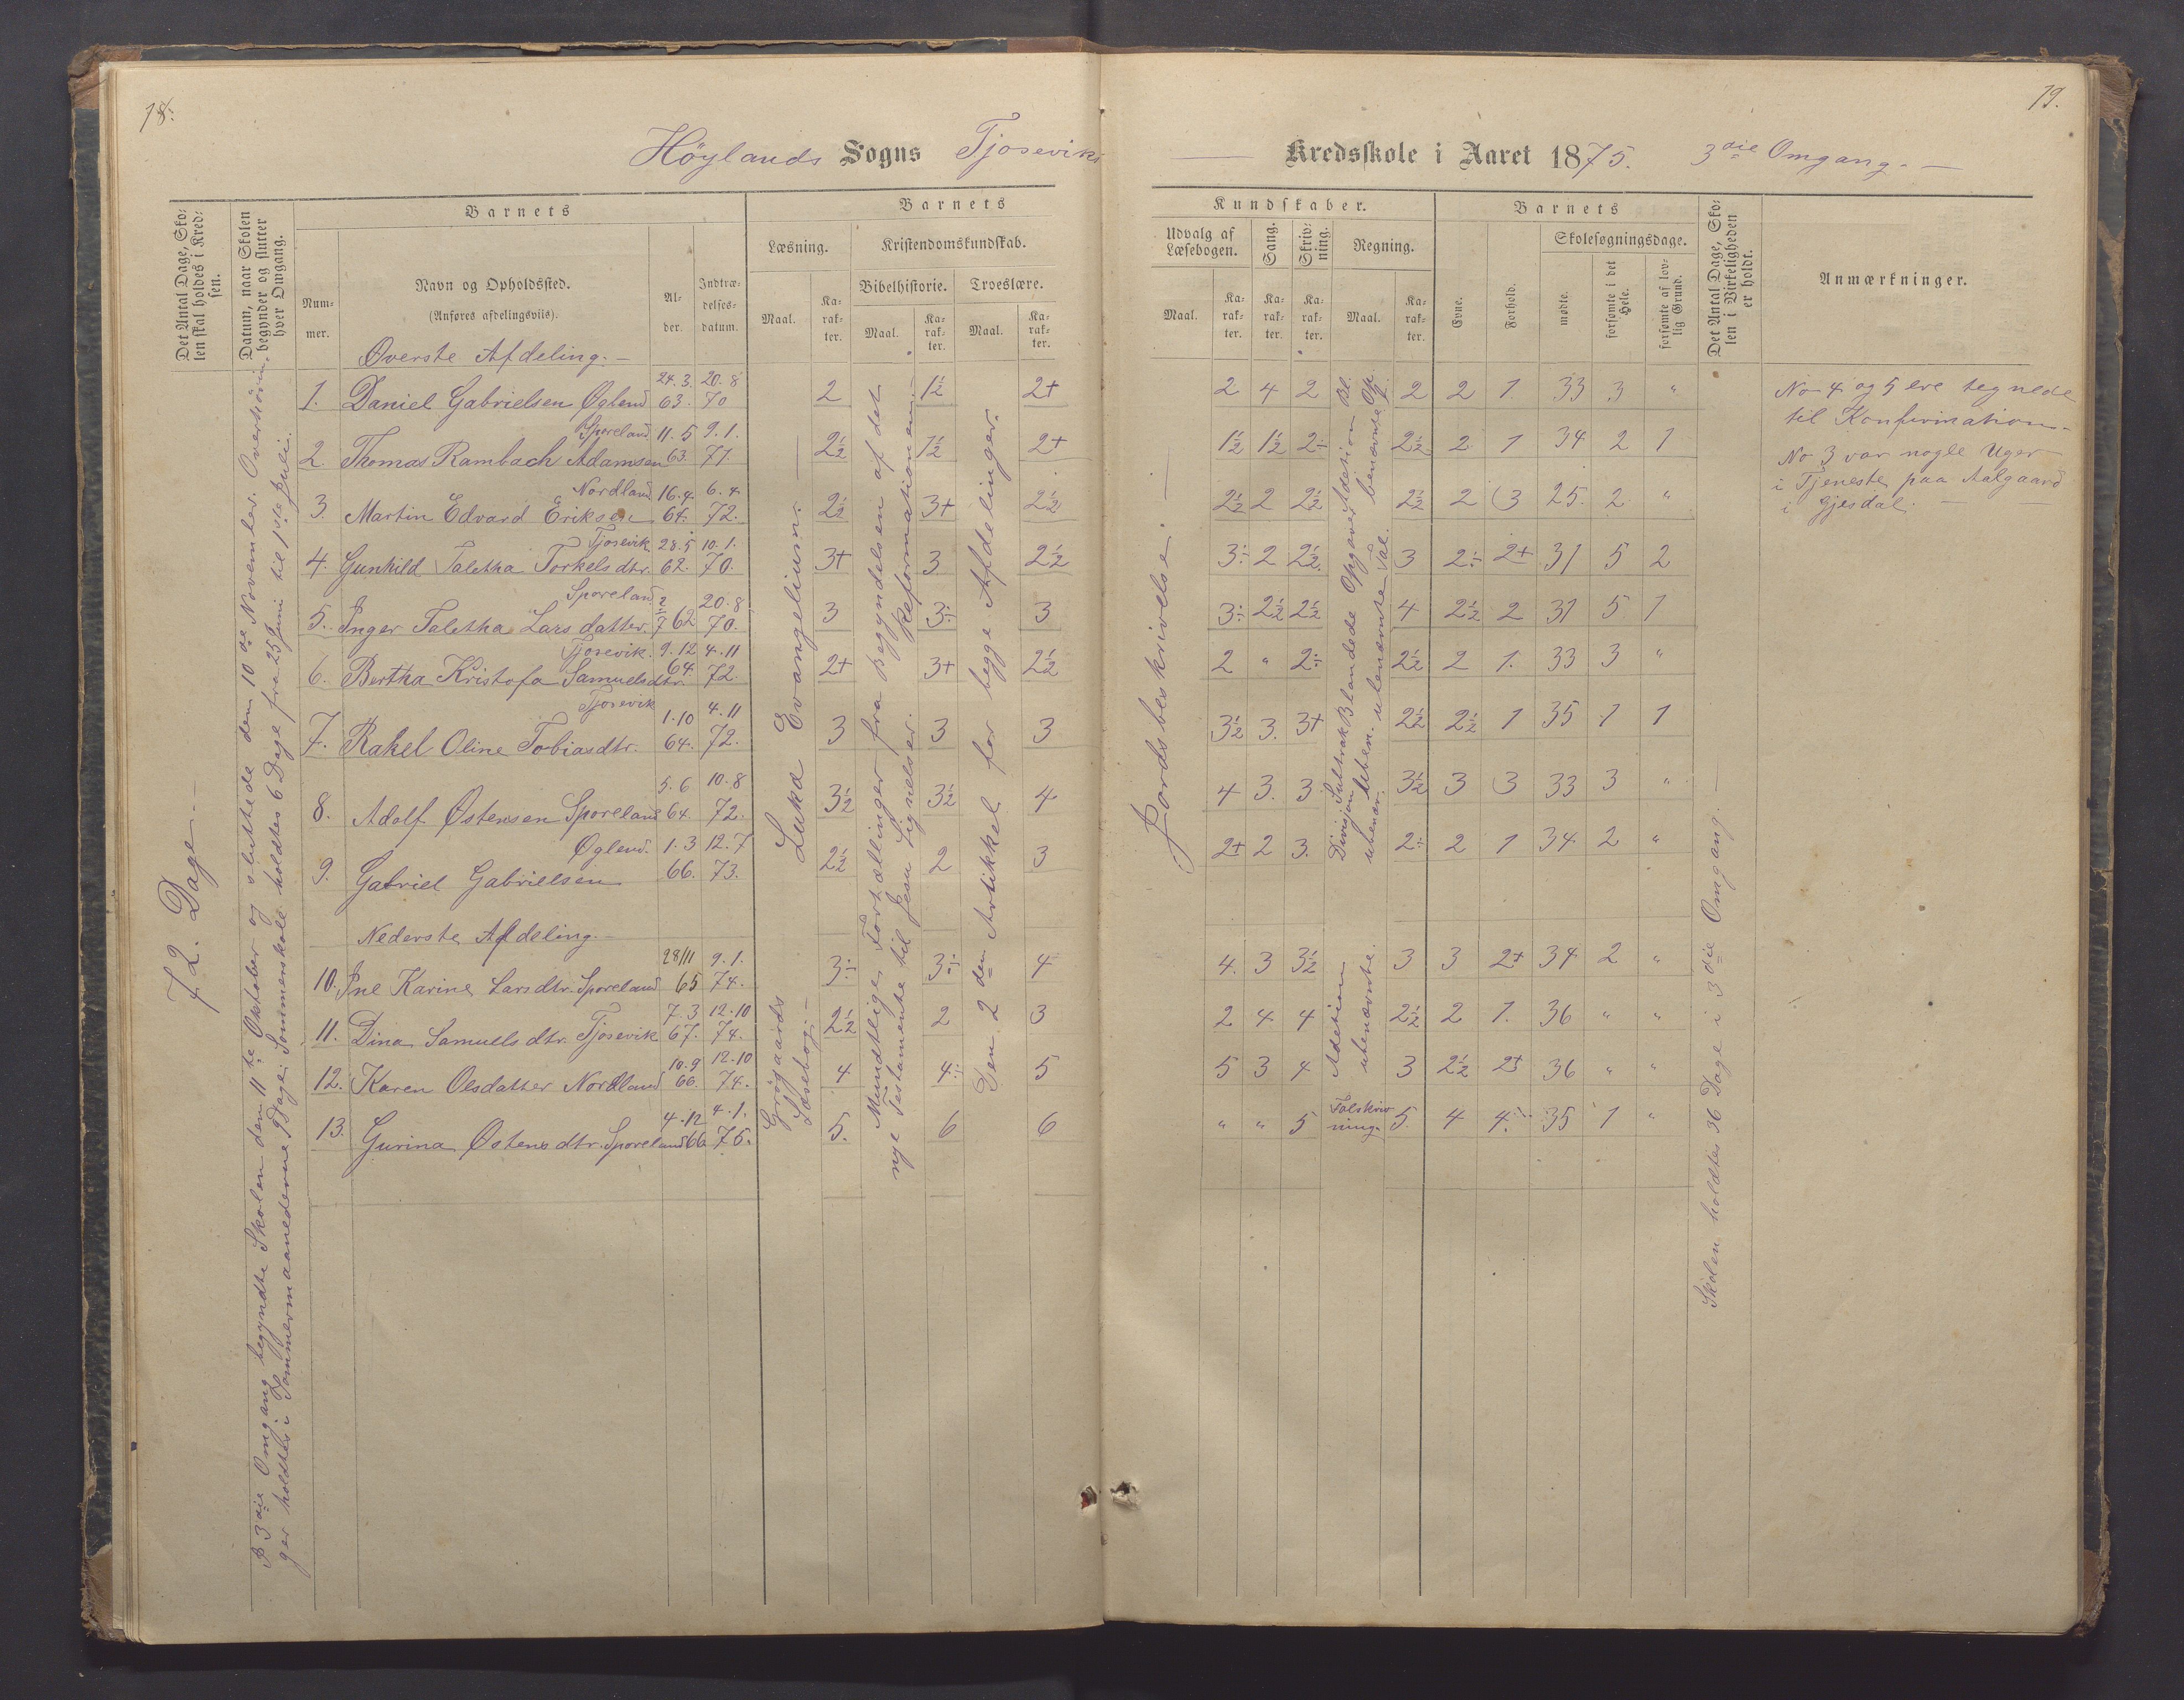 18.
Höylands Sogns Tjoseviks
Det Antal Dage, Skolen skal holdes i Kredsen.
Datum, naar Skolen begynder og slutter hver Omgang.
Barnets
Nummer.
Navn og Opholdssted.
(Anføres afdelingsviis).
Alder.
Indtrædelsesdatum.
Barnets
Læsning.
Kristendomskundskab.
Bibelhistorie. Troeslære.
Maal. Karakter. Maal. Karakter. Maal. Karakter.
Øverste Afdeling.
1. Daniel Gabrielsen Øglend 24.3. 63. 20.8 70 2 1½ 2+
2. Thomas Rambach Adamsen Sporeland 11.5 63. 9.1. 71 2½ 1½ 2+
3. Martin Edvard Eriksen Nordland 16.4. 64. 6.4. 72. 2½ 3+ 2½
4. Gunhild Taletha Torkelsdtr. Tjosevik 28.5 62. 10.1. 70. 3+ 3 2½
5. Inger Taletha Larsdatter. Sporeland 2/7 62 20.8 70. 3 3÷ 3
6. Bertha Kristofa Samuelsdtr. Tjosevik. 9.12 64. 4.11 72. 2+ 3+ 2½
7. Rakel Oline Tobiasdtr. Tjosevik 1.10 64. 4.11 72. 3 3 3
8. Adolf Østensen Sporeland 5.6 64. 10.8 72. 3½ 3½ 4
9. Gabriel Gabrielsen Øglend. 1.3 66. 12.7 73. 2½ 2 3
Nederste Afdeling.
10. Ine Karine Larsdtr. Sporeland 28/11 65 9.1. 74. 3÷ 3÷ 4
11. Dina Samuelsdtr. Tjosevik 7.3 67. 12.10 74. 2½ 2 3
12. Karen Olsdatter Nordland 10.9 66. 12.10 74. 4 4÷ 5
13. Gurina Østensdtr. Sporeland 4.12 66 4.1. 75. 5. 6 6
72. Dage.
I 3die Omgang begyndte Skolen den 11te Oktober og sluttede dem 10de November.
holdtes i Sommermaanederne
Sommerskole holdtes 6 Dage fra 25de Juni til 1ste Juli.
Lukæ Evangelium.
Grøgaards
Læsebog.
Mundtlige Fortællinger fra Begyndelsen af det
nye Testamente til Jesu Lignelser. Reformationen.
Den 2den Artikkel for begge Afdelinger.
19.
Kredsskole i Aaret 1875. 3die Omgang.
Kundskaber.
Udvalg af Læsebogen.
Sang.
Skrivning.
Regning.
Maal. Karakter. Karakter. Karakter. Maal. Karakter.
Barnets
Evne.
Forhold.
Skolesøgningsdage.
mødte.
forsømte i det Hele.
forsømte af lovlig Grund.
Det Antal Dage, Skolen i Virkeligheden er holdt.
Anmærkninger.
2 4 2 2 2 1. 33 3 "
1½ 1½ 2÷ 2½ 2 1 34 2 1
2½ 2 2½ 2½ 2 3 25. 2 "
3÷ 2 2½ 3 2÷ 2+ 31 5 2
3÷ 2½ 2½ 4 2½ 2 31 5 1
2 " 2÷ 2½ 2 1. 33 3 "
3½ 3. 3+ 2½ 2½ 1 35 1 1
4 3. 3 3½ 3 3 33 3 "
2+ 2 3. 2÷ 2 1 34 2 "
4. 3 3½ 3 3 2+ 34 2 "
2 4 4 2½ 2 1. 36 " "
5 3 4 3 2½ 2+ 36 " "
" " 5 Talskriv
ning. 5. 4 4÷ 35 1 "
Jordsbeskrivelse.
Adetion
ubenævnte.
Skolen holdtes 36 Dage i 3die Omgang.
No 4 og 5 ere tegnede
til Konfirmation.
No 3 var nogle Uger
i Tjeneste paa Aalgaard
i Gjesdal.